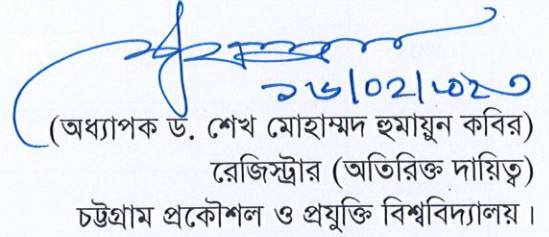 ১৬/০২/২০২৩
(অধ্যাপক ড. শেখ মোহাম্মদ হুমায়ুন কবির)
রেজিস্ট্রার (অতিরিক্ত দায়িত্ব)
চট্টগ্রাম প্রকৌশল ও প্রযুক্তি বিশ্ববিদ্যালয়।